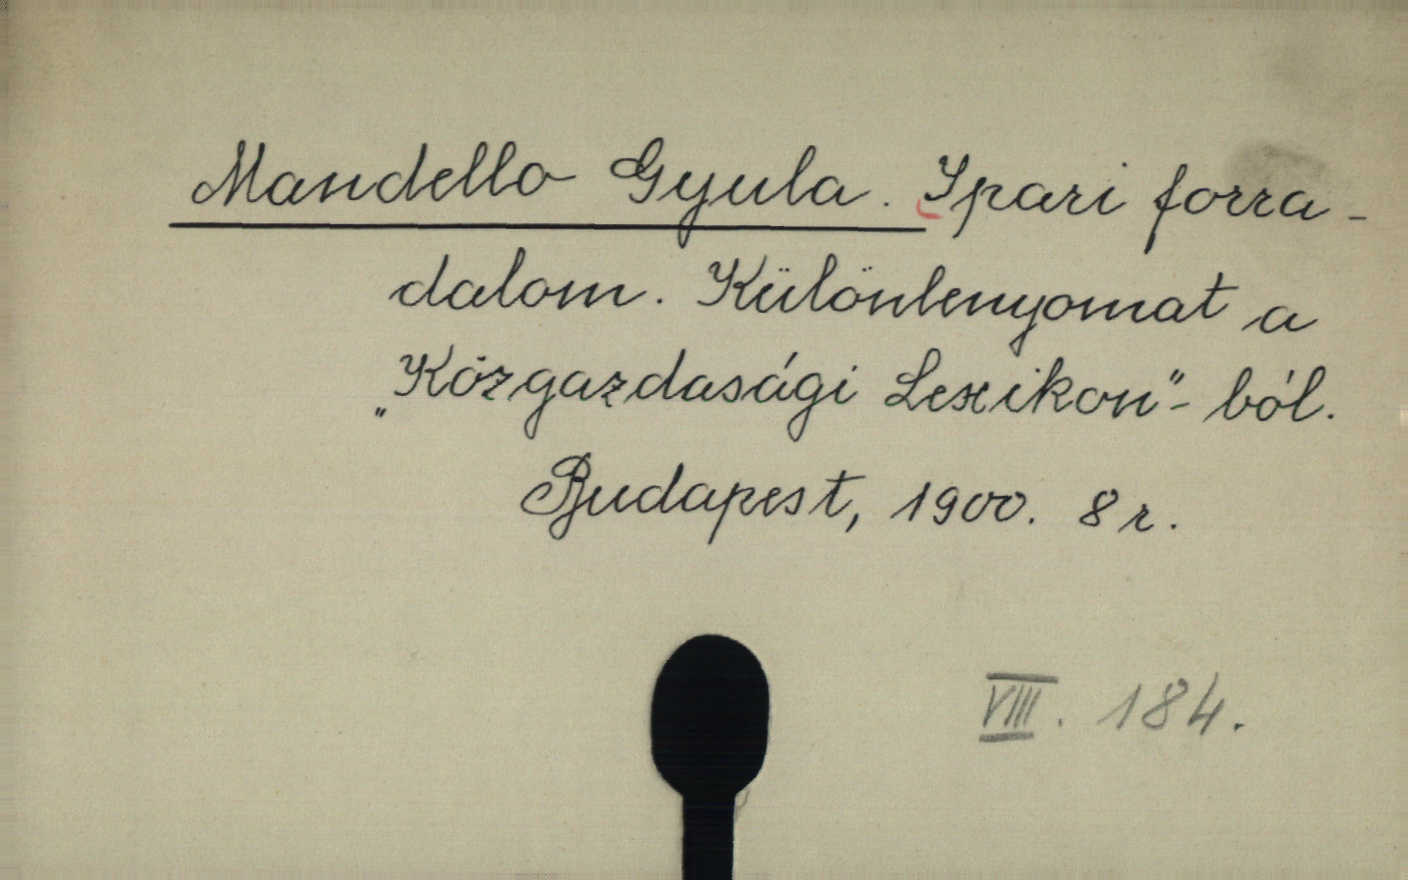 Mandello Gyula. Ipari forra-
dalom. Különlenyomat a
„Közgazdasági Lexikon"-ból.
Budapest, 1900. 8 r.
VIII. 184.